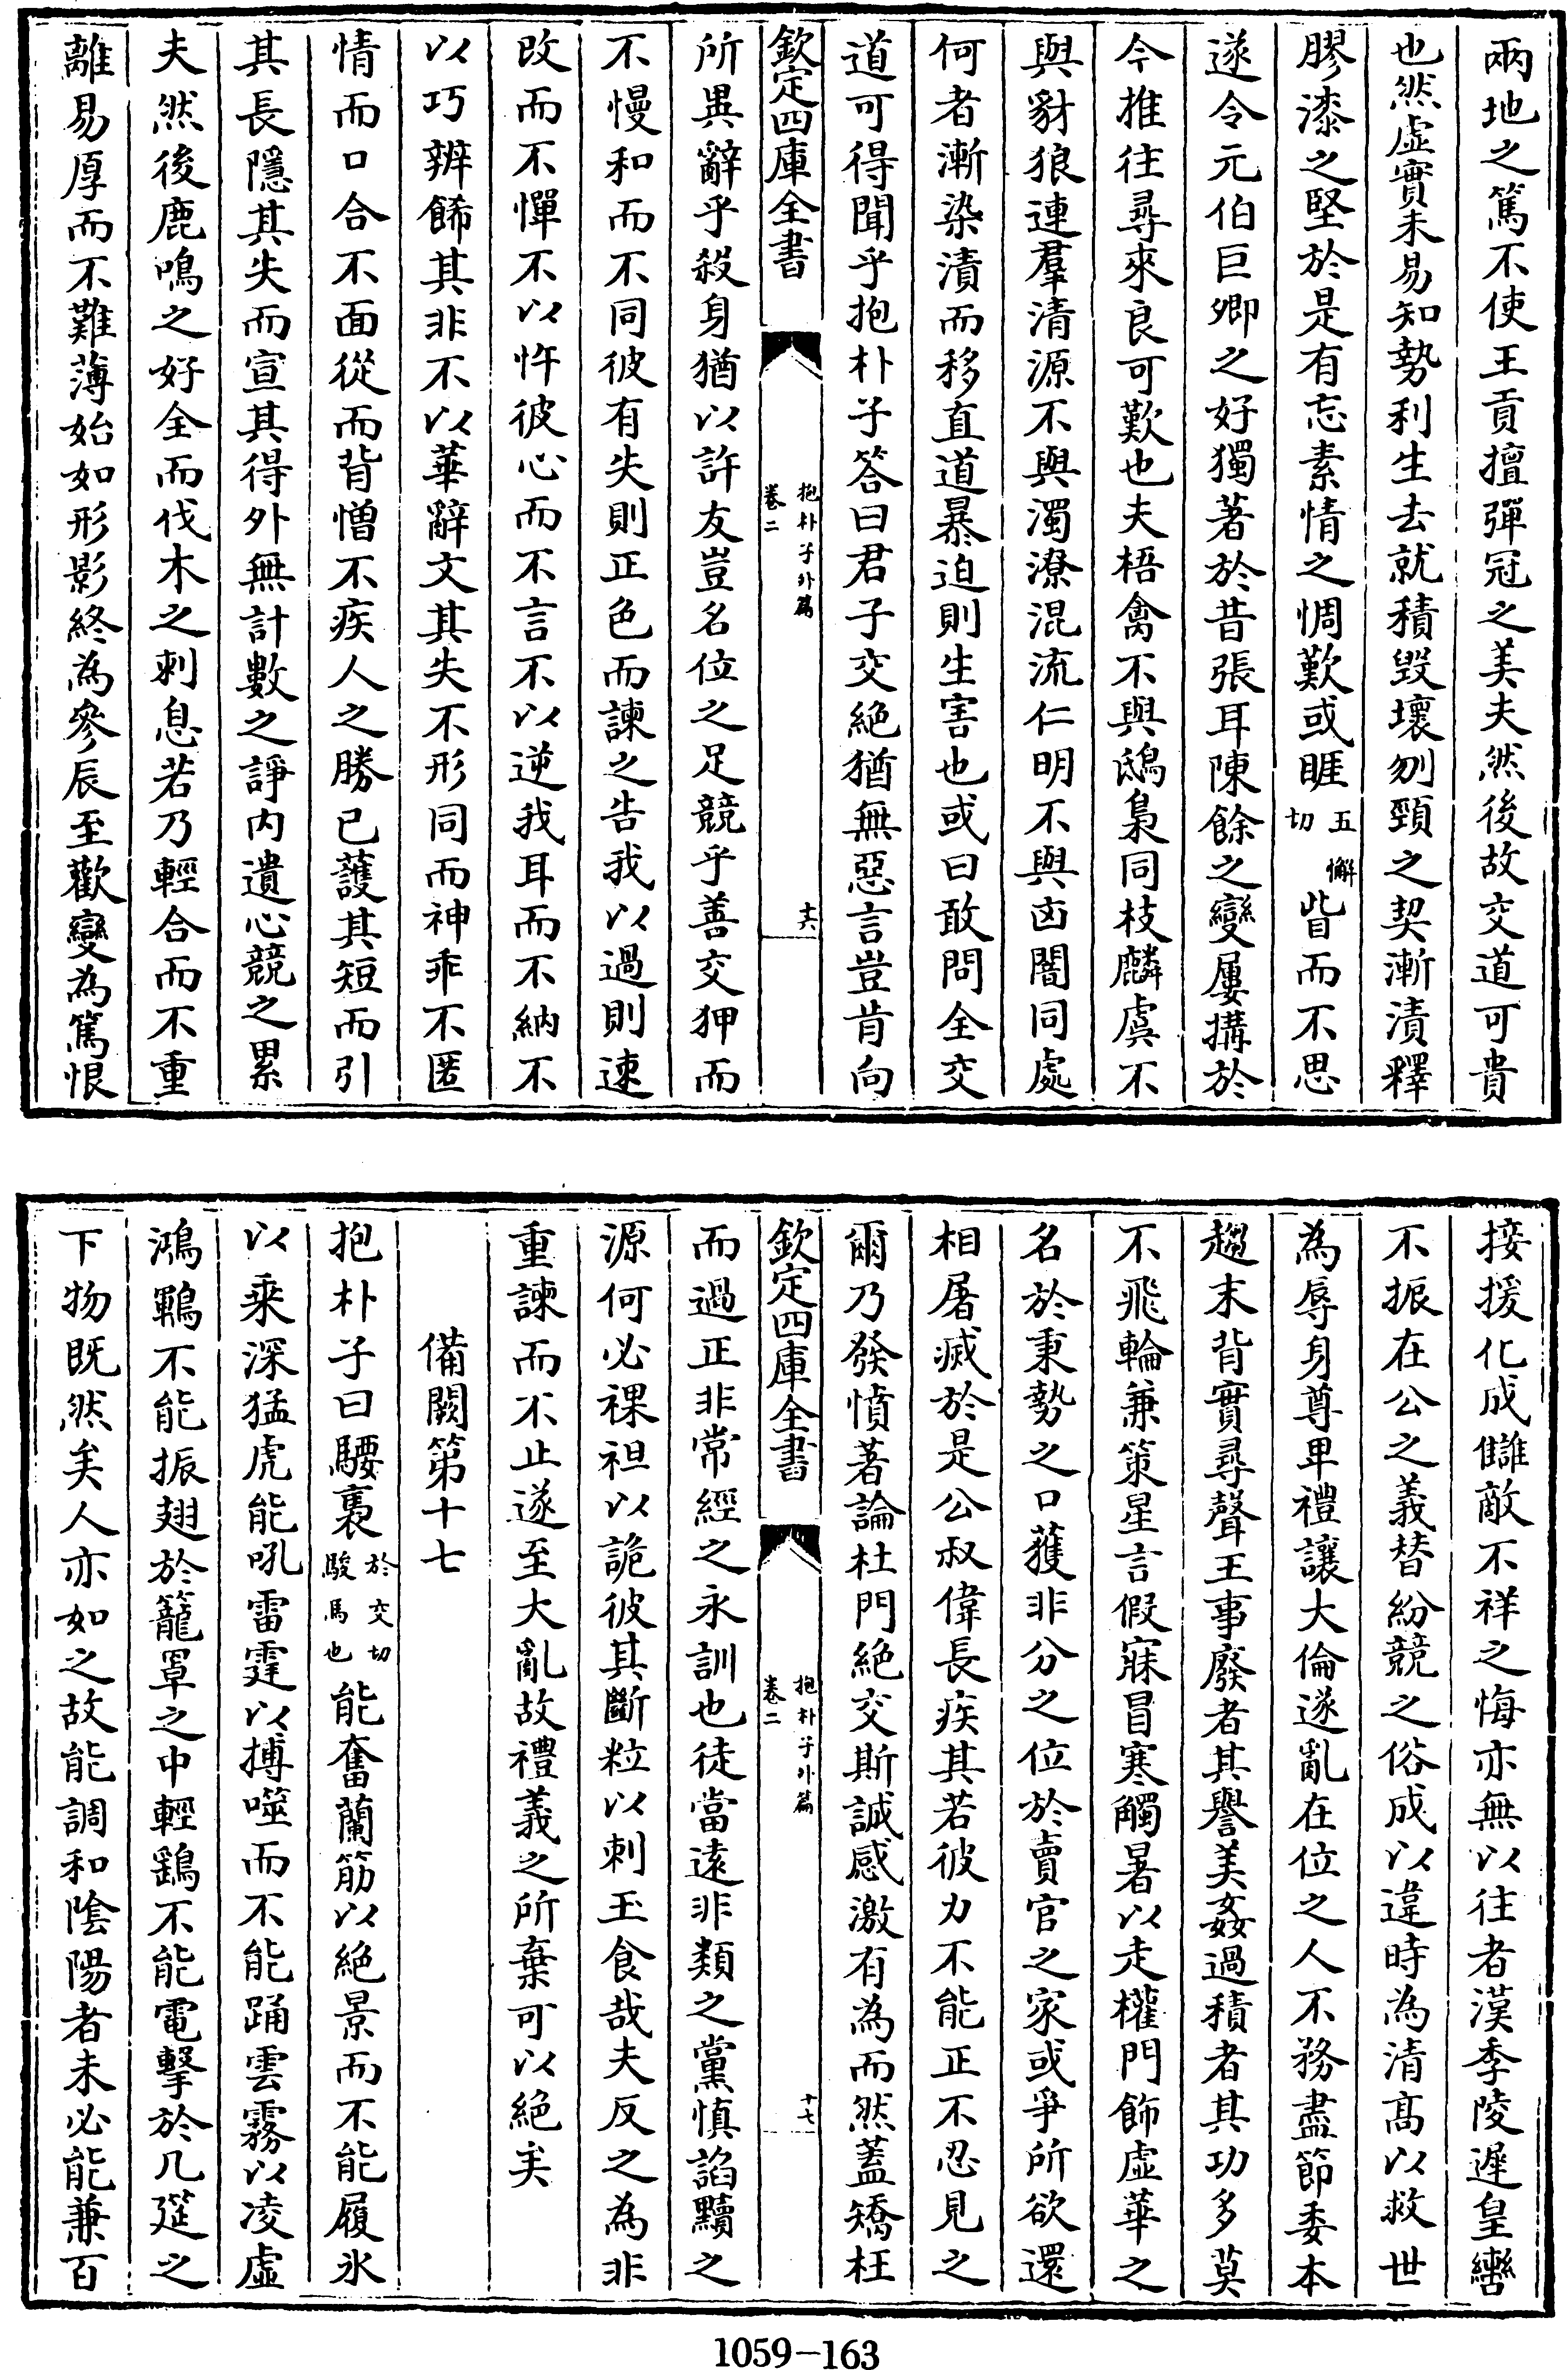 兩地之篤不使王貢擅彈冠之美夫然後故交道可貴
也然虛實未易知勢利生去就積毀壞刎頸之契漸漬釋
膠漆之堅於是有忘素情之惆歎或睚五懈切眥而不思
遂令元伯巨卿之好獨著於昔張耳陳餘之變屢搆於
今推往尋來良可歎也夫梧禽不與鴟梟同枝麟虞不
與豺狼連羣清源不與濁潦混流仁明不與凶闇同處
何者漸染漬而移直道暴迫則生害也或曰敢問全交
道可得聞乎抱朴子答曰君子交絕猶無惡言豈肯向
欽定四庫全書
抱朴子外篇
卷二
十六
所異辭乎殺身猶以許友豈名位之足競乎善交狎而
不慢和而不同彼有失則正色而諫之告我以過則速
改而不憚不以忤彼心而不言不以逆我耳而不納不
以巧辨飾其非不以華辭文其失不形同而神乖不匿
情而口合不面從而背憎不疾人之勝已護其短而引
其長隱其失而宣其得外無計數之諍内遺心競之累
夫然後鹿鳴之好全而伐木之刺息若乃輕合而不重
離易厚而不難薄始如形影終為參辰至歡變為篤恨
接援化成讎敵不祥之悔亦無以往者漢季陵遲皇轡
不振在公之義替紛競之俗成以違時為清髙以救世
為辱身尊卑禮讓大倫遂亂在位之人不務盡節委本
趨末背實尋聲王事廢者其譽美姦過積者其功多莫
不飛輪兼策星言假寐冒寒觸暑以走權門飾虛華之
名於秉勢之口獲非分之位於賣官之家或爭所欲還
相屠滅於是公叔偉長疾其若彼力不能正不忍見之
爾乃發憤著論杜門絕交斯誠感激有為而然蓋矯枉
欽定四庫全書
抱朴子外篇
卷二
十七
而過正非常經之永訓也徒當遠非類之黨慎諂黷之
源何必裸袒以詭彼其斷粒以刺玉食哉夫反之為非
重諫而不止遂至大亂故禮義之所棄可以絕矣
備闕第十七
抱朴子曰騕褭於交切駿馬也能奮蘭筋以絕景而不能履氷
以乘深猛虎能吼雷霆以搏噬而不能踊雲霧以凌虛
鴻鶤不能振翅於籠罩之中輕鷂不能電擊於几筵之
下物既然矣人亦如之故能調和陰陽者未必能兼百
1059-163